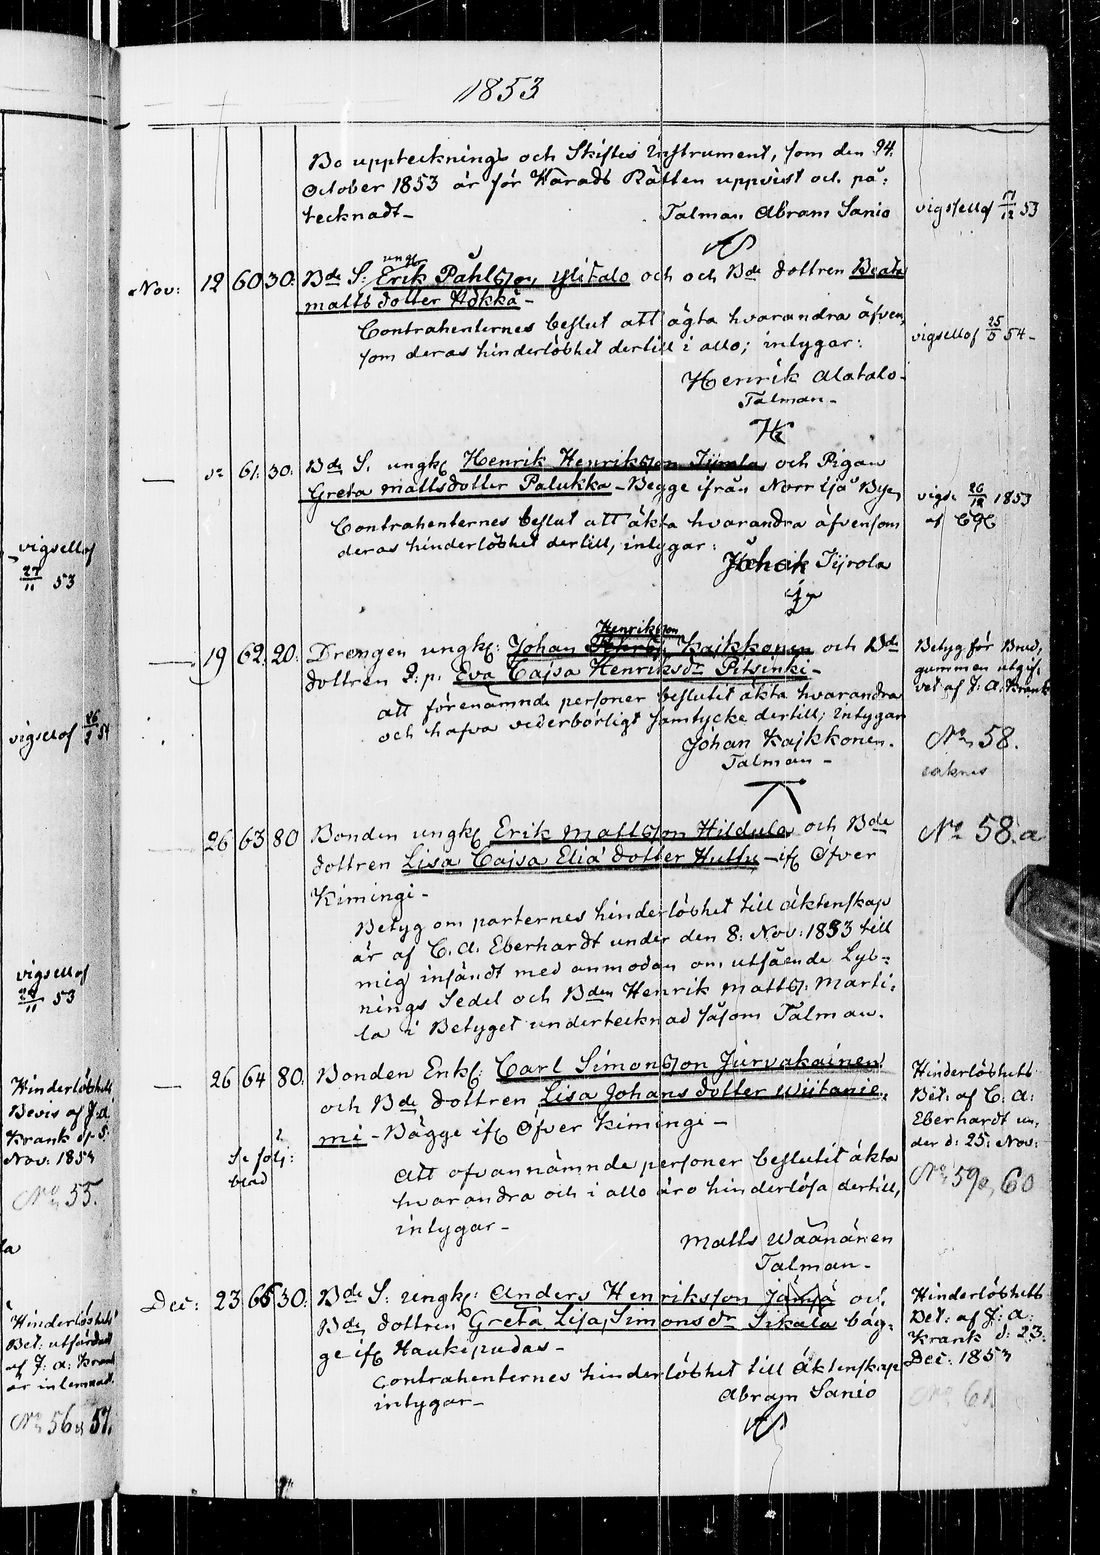 1853
Bo upptecknings och Skiftes Instrument, som den 24.
October 1853 är för Härads Rätten uppvist och på-
tecknadt_
Talman Abram Sanio
AS
vigsellof 11/12 53
Nov: 12 60 30: Bde S: ungk Erik Påhlsson, Ylitalo och och Bde dottren Beata
Matts dotter Hökkä_
Contrahenternes beslut att ägta hvarandra äfven,
som deras hinderlöshet dertill i allo; intygar:
Henrik Alatalo_
Talman_
vigsellof 25/5 54_
— 61. 30: Bde S. ungk Henrik Henriksson Tijrola och Pigan
Greta Mattsdotter Palukka_ Begge ifrån Norr Ijå Byn
Contrahenternes beslut att äkta hvarandra äfvensom
deras hinderlöshet dertill, intygar:
Tijrola
vigs: 26/12 1853
af
— 19 62. 20: Drengen ungk: Johan Henriksson Kaikkonen och Bde
dottren Eva Cajsa Henriksdr Pitsinki_
att förenämnde personer beslutit äkta hvarandra
och hafva vederbörligt samtycke dertill; intygar
Johan Kaikkonen.
Talman_
Betyg för Brud,
gummen utgif,
vet af J: A: Krank
No 58.
saknas
26 63 80 Bonden ungk Erik Mattsson Hildula och Bde
dottren Lisa Cajsa Elia dotter Huttu_ if Öfver
Kimingi_
Betyg om parternes hinderlöshet till äktenskap
är af C. A. Eberhardt under den 8: Nov: 1853 till
mig insändt med anmodan om utfående Lys-
nings Sedel och Bden Henrik Matts: Marti-
la i Betyget undertecknad såsom Talman.
No 58.a
— 26 64 80. Bonden Enk: Carl Simonsson Jurvakainen
och Bde dottren Lisa Johans dotter Wiitanie,
mi_ Bägge if Öfver Kimingi_
Se följ:
blad
Att ofvannämnde personer beslutit äkta
hvarandra och i allo äro hinderlösa dertill,
intygar_
Matts Wäänänen
Talman_
Hinderlöshets
Bet: af C: A:
Eberhardt un,
der d: 25: Nov:
No 59 60
Dec: 23 65 30: Bde S: ungk: Anders Henriksson Jämsä och
Bde dottren Greta Lisa Simonsdr Sikala båg-
ge if Haukipudas_
Contrahenternes hinderlöshet till äktenskap
intygar_
Abram Sanio
AS
Hinderlöshets
Bet: af J: A:
Krank d: 23.
Dec: 1853
No 61.
vigsellof
27/11 53
vigsellof 54
vigsellof
11 53
Hinderlöshets
Bevis af J: A:
Krank d. 5:
Nov: 1853
No 55.
Hinderlöshets
Bet: utfärdadt
af J: A: Krank
är inlemnad.
No 56 57.